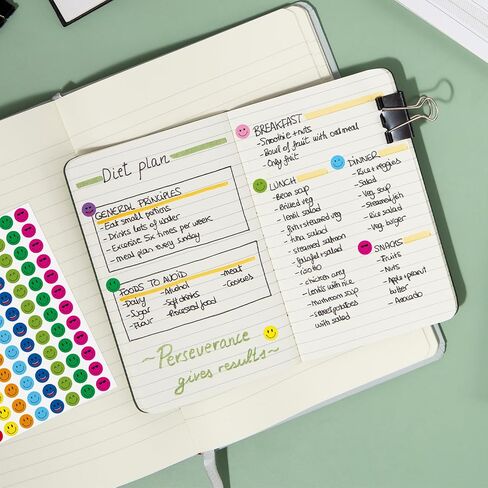 Diet plan
GENERAL PRINCIPLES
- Eat small portions
- Drinks lots of water
- Exercise 5x times per week
- meal plan every sunday
FOODS TO AVOID
- Daily - Alcohol - meat
- Sugar - Soft drinks - Cookies
- Flour - Processed food
~Perseverance
gives results~
BREAKFAST
- Smoothie + nuts
- Bowl of fruit with oatmeal
- Only fruit
LUNCH
- Bean soup
- Boiled veg
- lentil salad
- fish + steamed veg
- tuna salad
- steamed salmon
- falafel + salad
- risotto
- chicken curry
- lentils with rice
- mushroom soup
- sweet potatoes
with salad
DINNER
- Rice + veggies
- Salad
- Veg. soup
- Steamed fish
- Rice salad
- Veg. burger
SNACKS
- Fruits
- Nuts
- Apple + peanut
butter
- Avocado